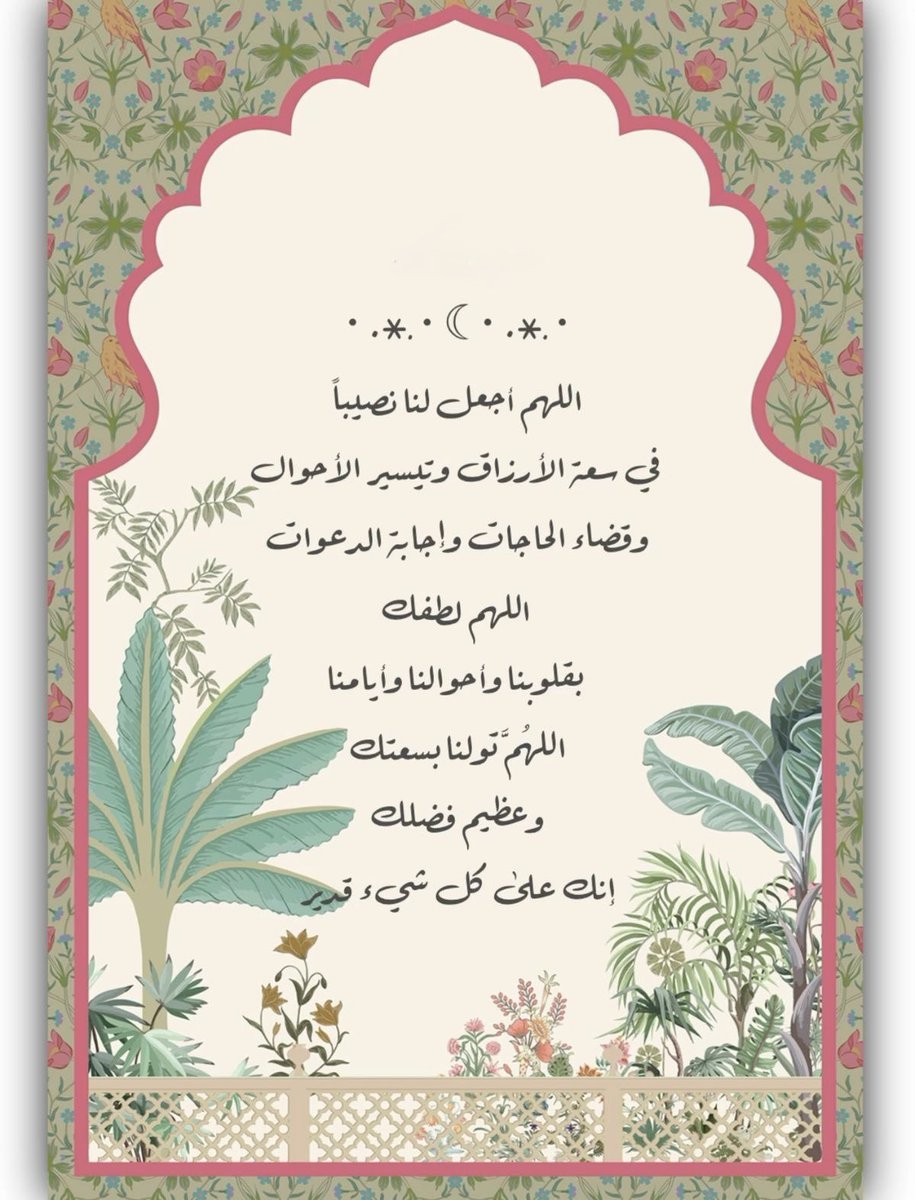 اللهم أجعل لنا نصيباً
في سعة الأرزاق وتيسير الأحوال
وقضاء الحاجات وإجابة الدعوات
اللهم لطفك
بقلوبنا وأحوالنا وأيامنا
اللهُمَّ تولنا بسعتك
وعظيم فضلك
إنك علىٰ كل شيء قدير